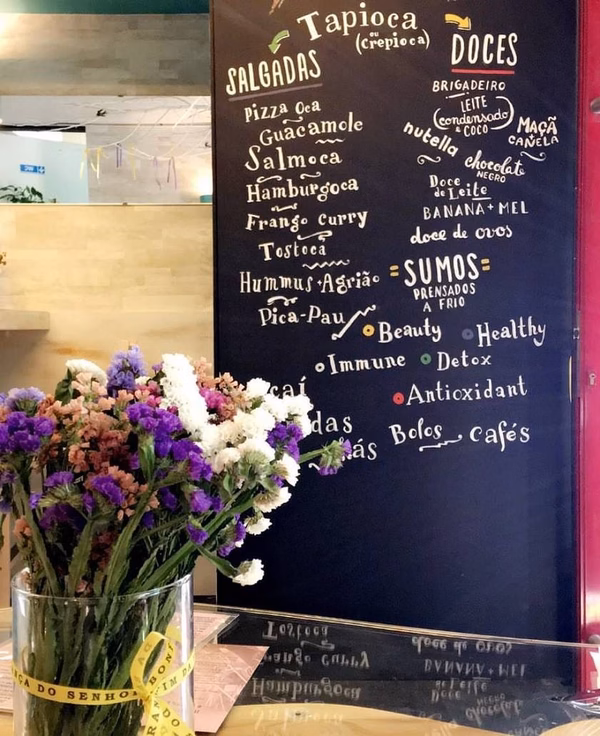 Tapioca
ou
(crepioca)
SALGADAS
PIZZA Oca
Guacamole
Salmoca
Hamburgoca
Frango curry
Tostoca
Hummus + Agrião
Pica-Pau
DOCES
BRIGADEIRO
LEITE
condensado
& COCO
nutella
MAÇÃ
CANELA
chocolate
NEGRO
Doce
de Leite
BANANA + MEL
doce de ovos
=SUMOS=
PRENSADOS
A FRIO
Beauty
Healthy
Immune
Detox
Antioxidant
Bolos
cafés
çaí
das
ás
ÇA DO SENHOR